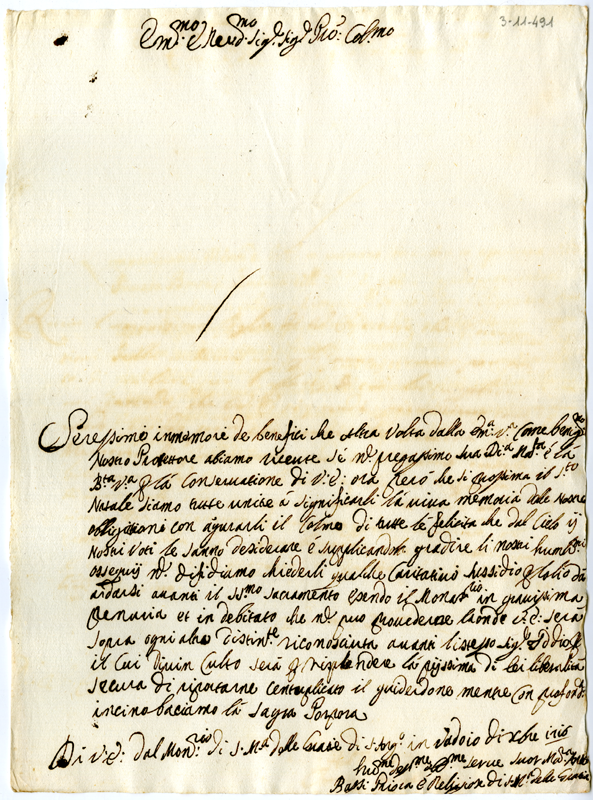 3-11-491
Em.mo e Reud.mo Sig.r Sig.r Pro.n Col.mo
Seressimo inmemore de benefici che altra volta dalla Em.a V.a Come benig.o
Nostro Protettore abiamo riceute se n.n pregassimo Sua Di.a M.ta e la
B.ta V.a p la Conseruatione di V: E: ora però che si prossima il S.to
Natale siamo tutte unite à significarli la uiua memoria delle Nostre
obligationi con agurarli il Colmo di tutte le felicita che dal Cielo ij
Nostri Voti le sanno desiderare è supplicandola gradire li nostri humil.mi
ossequij n.n difidiamo chiederli qualche Caritatiuo Sussidio p l'olio da
ardarsi auanti il SS.mo Sacramento esendo il Monast.rio in grauissima
Penuria et in debitato che n.n puo prouedere laonde V: E: sera
sopra ogni altro distint.te riconosciuta auanti l'istesso Sig.r Iddio p
il Cui Diuin Culto sera p risplendere la pijssima di lei liberalita
secura di riportarne centuplicato il guiderdone mentre Con profondo
incino baciamo la Sagra Porpora
Di V: E: dal Mon.rio di S. M.a delle Gratie di S. Arg.o in Vadoio di
Hu.me De.me
serue Suor M.a
Bassi Priora è Religiose di S. M.a delle Gratie